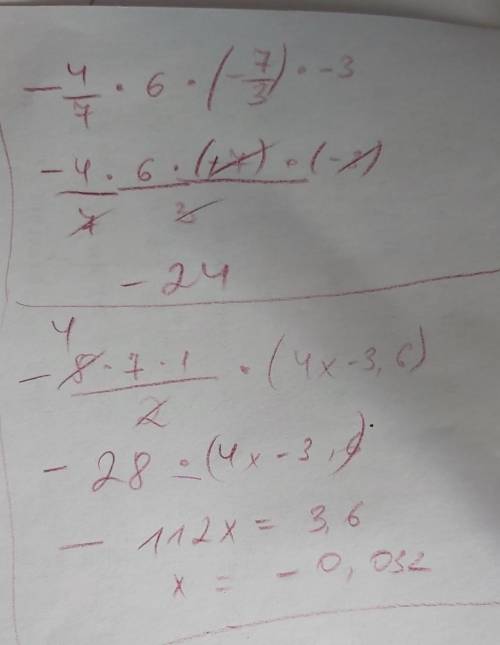 - 4/7 · 6 · (-7/3) · -3
- 4 · 6 · (+7) · (-3)
7 3
- 24
4
- 8 · 7 · 1 / 2 · (4x - 3,6)
- 28 · (4x - 3,6)
- 112x = 3,6
x = - 0,032